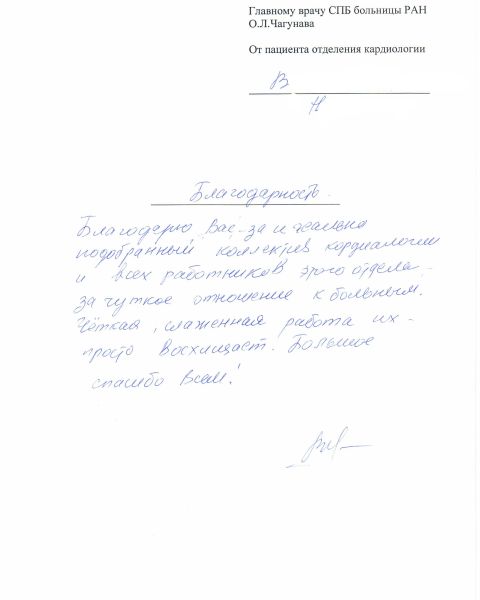 Главному врачу СПБ больницы РАН
О.Л.Чагунава
От пациента отделения кардиологии
В
Н
Благодарность.
Благодарю Вас за идеально
подобранный коллектив кардиологии
и всех работников этого отдела -
за чуткое отношение к больным.
Чёткая, слаженная работа их -
просто восхищает. Большое
спасибо всем!